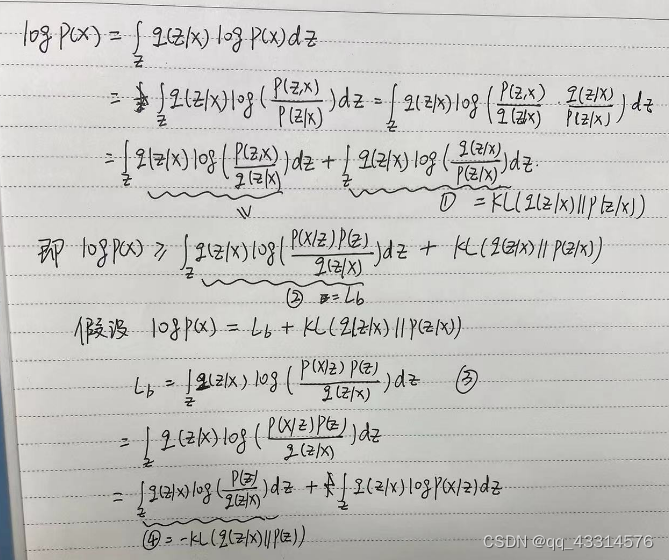 log P(x) = ∫_z q(z/x) log P(x) dz
= ∫_z q(z/x) log( P(z,x) / P(z/x) ) dz = ∫_z q(z/x) log( P(z,x) / q(z/x) · q(z/x) / P(z/x) ) dz
= ∫_z q(z/x) log( P(z,x) / q(z/x) ) dz + ∫_z q(z/x) log( q(z/x) / P(z/x) ) dz.
① = KL( q(z/x) || P(z/x) )
即 log P(x) ≥ ∫_z q(z/x) log( P(x/z) P(z) / q(z/x) ) dz + KL( q(z/x) || P(z/x) )
② = L_b
假设 log P(x) = L_b + KL( q(z/x) || P(z/x) )
L_b = ∫_z q(z/x) log( P(x/z) P(z) / q(z/x) ) dz ③
= ∫_z q(z/x) log( P(x/z) P(z) / q(z/x) ) dz
= ∫_z q(z/x) log( P(z) / q(z/x) ) dz + ∫_z q(z/x) log P(x/z) dz
④ = -KL( q(z/x) || P(z) )
CSDN @qq_43314576